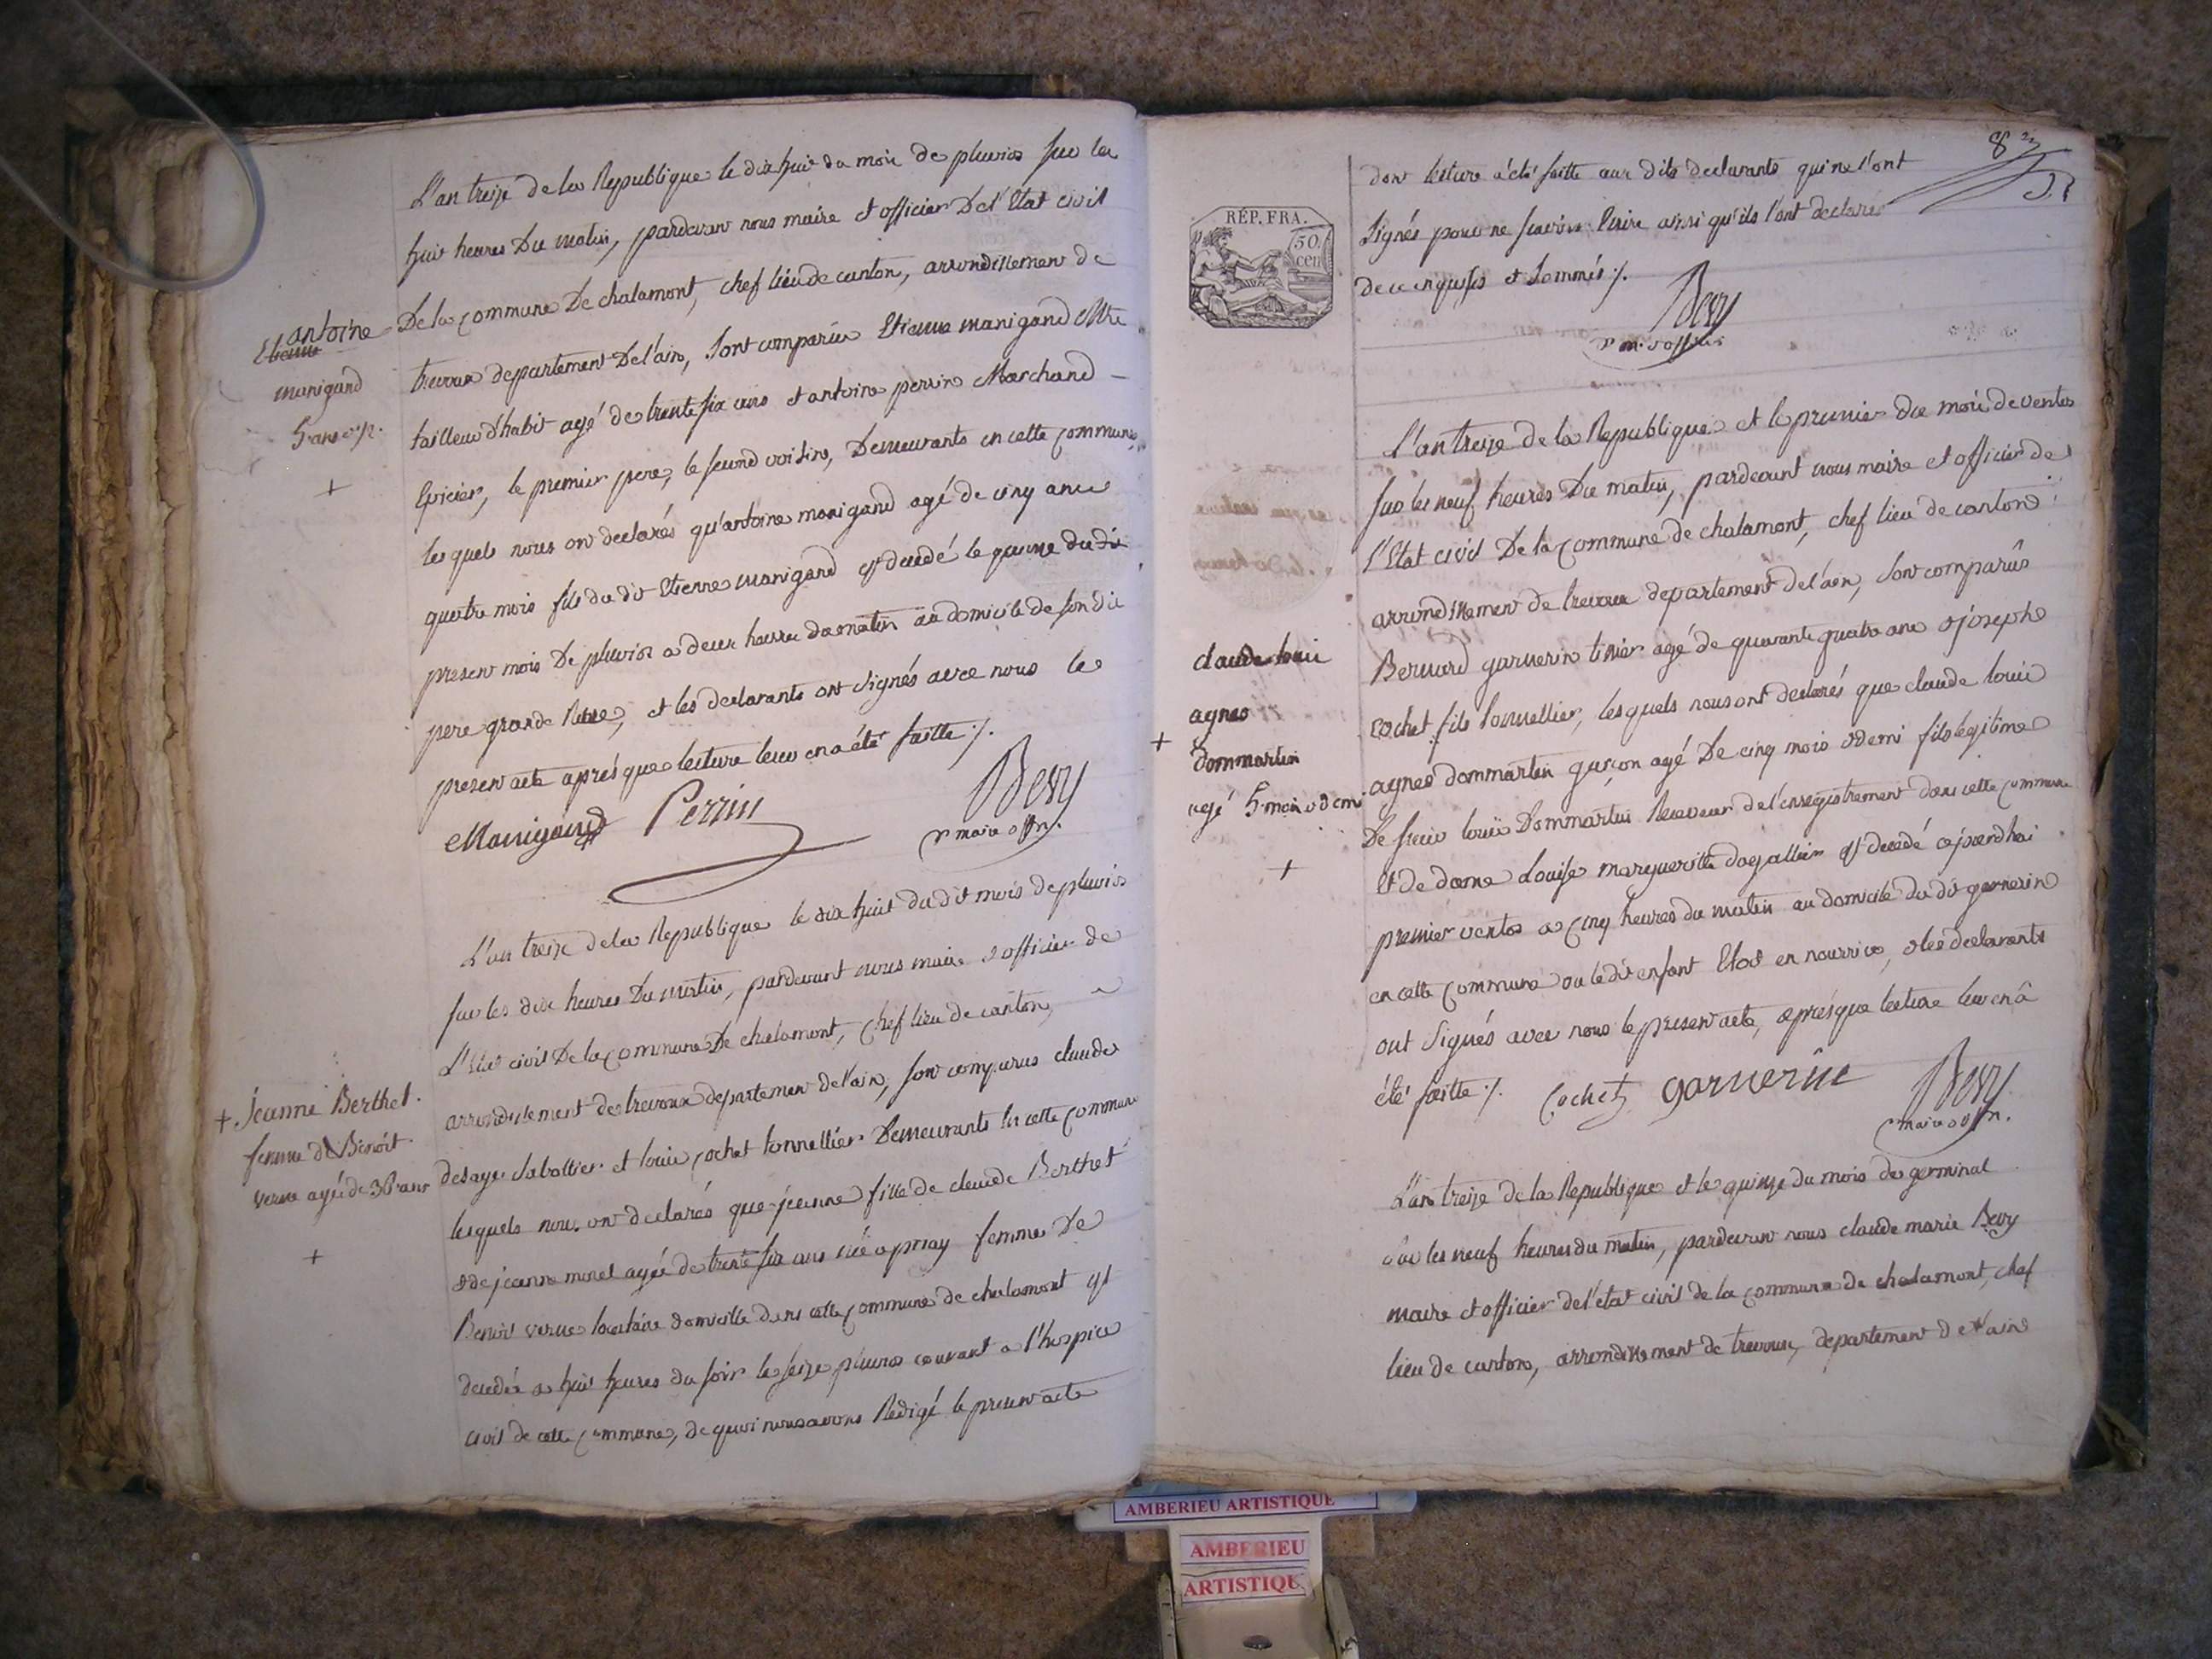 L'an treize de la Republique le dix huit du mois de pluvios sur les
huit heures Du matin, pardevant nous maire et officier De l'Etat civil
De la commune De chalamont, chef lieu de canton, arrondissement de
trevoux departement De l'ain, sont comparus Etienne manigand Mtre
tailleur d'habit agé de trente six ans et antoine perrin Marchand
Epicier, le premier pere, le second voisin, Demeurants en cette commune
lesquels nous ont declarés qu'antoine manigand agé de cinq ans
quatre mois fils du dit Etienne manigand est decedé le quinze du dit
present mois De pluvios a deux heures du matin au domicile de son dit
pere grande Rue, et les declarants ont signés avec nous le
present acte aprés que lecture leur en a été faitte ·/.
antoine
Etienne
manigand
5 ans
+
Manigand Perrin Bevy
maire offr.
L'an treize de la Republique le dix huit du dit mois de pluvios
sur les dix heures Du matin, pardevant nous maire et officier de
L'Etat civil De la commune De chalamont, chef lieu de canton,
arrondissement de trevoux departement de l'ain, sont comparus claude
desaye sabottier et louis cochet tonnellier Demeurants en cette commune
lesquels nous ont declarés que jeanne fille de claude Berthet
et de jeanne morel agée de trente six ans née a priay femme De
Benoit verne locataire domicilié dans cette commune de chalamont est
decedée a huit heures du soir le seize pluvios courant a l'hospice
civil de cette commune, de quoi nous avons Redigé le present acte
+ Jeanne Berthet.
femme de Benoit
verne agée de 36 ans
+
8
dont lecture a été faitte aux dits declarants qui ne l'ont
signés pour ne savoir Ecrire ainsi qu'ils l'ont declarés
de ce enquis et sommés ·/.
Bevy
RÉP. FRA.
50.
cen
L'an treize de la Republique et le premier du mois de ventos
sur les neuf heures Du matin, pardevant nous maire et officier de
l'Etat civil De la commune de chalamont, chef lieu de canton
arrondissement de trevoux departement de l'ain, sont comparûs
Bernard garnerin tissier agé de quarante quatre ans et joseph
cochet fils tonnellier, lesquels nous ont declarés que claude louis
agnes dommartin garçon agé De cinq mois et demi fils legitime
De sieur louis Dommartin Receveur de l'enregistrement dans cette commune
et de dame Louise margueritte dagallier est decedé cejourdhui
premier ventos a cinq heures du matin au domicile du dit garnerin
en cette commune ou le dit enfant Etoit en nourrice, et les declarants
ont signés avec nous le present acte, aprés que lecture leur en â
été faitte ·/. Cochet garnerin Bevy
maire offr.
claude louis
agnes
+ dommartin
agé 5 mois et demi
+
L'an treize de la Republique et le quinze du mois de germinal
sur les neuf heures du matin, pardevant nous claude marie Bevy
maire et officier de l'etat civil de la commune de chalamont, chef
lieu de canton, arrondissement de trevoux, departement de l'ain
AMBERIEU ARTISTIQUE
AMBERIEU
ARTISTIQUE